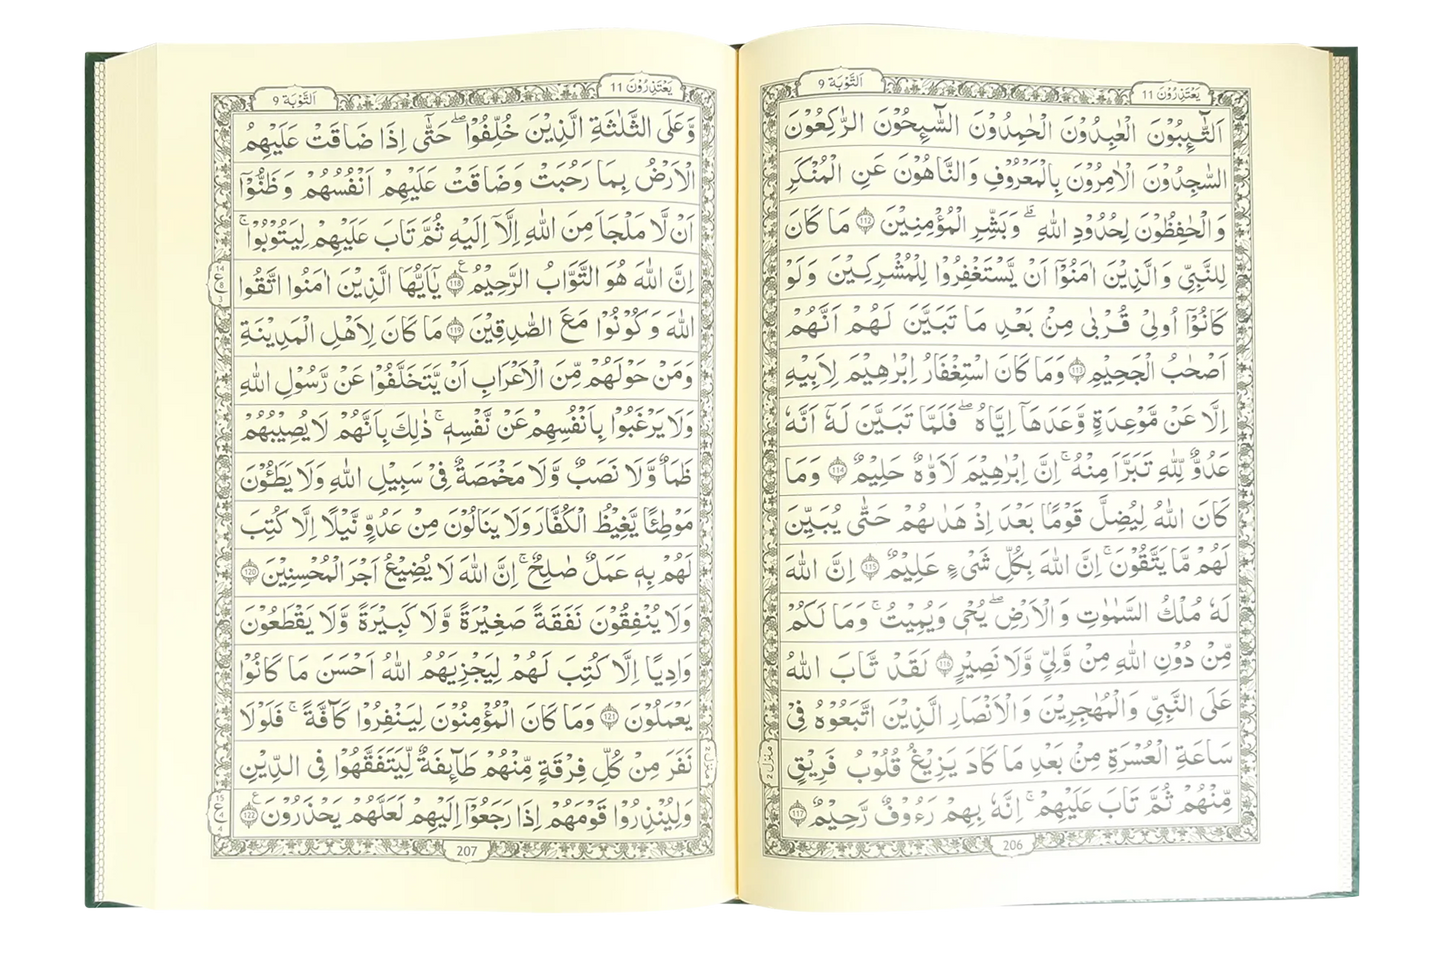 اَلتَّوۡبَة 9
يَعۡتَذِرُوۡنَ 11
اَلتَّآٮِٕبُوۡنَ الۡعٰبِدُوۡنَ الۡحٰمِدُوۡنَ السَّآٮِٕحُوۡنَ الرّٰكِعُوۡنَ
السّٰجِدُوۡنَ الۡاٰمِرُوۡنَ بِالۡمَعۡرُوۡفِ وَالنَّاهُوۡنَ عَنِ الۡمُنۡكَرِ
وَ الۡحٰـفِظُوۡنَ لِحُدُوۡدِ اللّٰهِ‌ ؕ وَبَشِّرِ الۡمُؤۡمِنِيۡنَ 112 مَا كَانَ
لِلنَّبِىِّ وَالَّذِيۡنَ اٰمَنُوۡۤا اَنۡ يَّسۡتَغۡفِرُوۡا لِلۡمُشۡرِكِيۡنَ وَ لَوۡ
كَانُوۡۤا اُولِىۡ قُرۡبٰى مِنۡۢ بَعۡدِ مَا تَبَيَّنَ لَهُمۡ اَنَّهُمۡ
اَصۡحٰبُ الۡجَحِيۡمِ 113 وَمَا كَانَ اسۡتِغۡفَارُ اِبۡرٰهِيۡمَ لِاَبِيۡهِ
اِلَّا عَنۡ مَّوۡعِدَةٍ وَّعَدَهَاۤ اِيَّاهُ‌ ۚ فَلَمَّا تَبَيَّنَ لَهٗۤ اَنَّهٗ
عَدُوٌّ لِّلّٰهِ تَبَرَّاَ مِنۡهُ‌ ؕ اِنَّ اِبۡرٰهِيۡمَ لَاَوَّاهٌ حَلِيۡمٌ 114 وَمَا
كَانَ اللّٰهُ لِيُضِلَّ قَوۡمًۢا بَعۡدَ اِذۡ هَدٰٮهُمۡ حَتّٰى يُبَيِّنَ
لَهُمۡ مَّا يَتَّقُوۡنَ‌ ؕ اِنَّ اللّٰهَ بِكُلِّ شَىۡءٍ عَلِيۡمٌ 115 اِنَّ اللّٰهَ
لَهٗ مُلۡكُ السَّمٰوٰتِ وَالۡاَرۡضِ‌ ؕ يُحۡىٖ وَيُمِيۡتُ‌ ؕ وَمَا لَكُمۡ
مِّنۡ دُوۡنِ اللّٰهِ مِنۡ وَّلِىٍّ وَّلَا نَصِيۡرٍ 116 لَـقَدۡ تَّابَ اللّٰهُ
عَلَى النَّبِىِّ وَالۡمُهٰجِرِيۡنَ وَالۡاَنۡصَارِ الَّذِيۡنَ اتَّبَعُوۡهُ فِىۡ
سَاعَةِ الۡعُسۡرَةِ مِنۡۢ بَعۡدِ مَا كَادَ يَزِيۡغُ قُلُوۡبُ فَرِيۡقٍ
مِّنۡهُمۡ ثُمَّ تَابَ عَلَيۡهِمۡ‌ ؕ اِنَّهٗ بِهِمۡ رَءُوۡفٌ رَّحِيۡمٌ 117
منزل ٢
206
اَلتَّوۡبَة 9
يَعۡتَذِرُوۡنَ 11
وَّعَلَى الثَّلٰثَةِ الَّذِيۡنَ خُلِّفُوۡا ؕ حَتّٰۤى اِذَا ضَاقَتۡ عَلَيۡهِمُ
الۡاَرۡضُ بِمَا رَحُبَتۡ وَضَاقَتۡ عَلَيۡهِمۡ اَنۡفُسُهُمۡ وَظَنُّوۡۤا
اَنۡ لَّا مَلۡجَاَ مِنَ اللّٰهِ اِلَّاۤ اِلَيۡهِ ثُمَّ تَابَ عَلَيۡهِمۡ لِيَتُوۡبُوۡا ؕ
اِنَّ اللّٰهَ هُوَ التَّوَّابُ الرَّحِيۡمُ 118 يٰۤـاَيُّهَا الَّذِيۡنَ اٰمَنُوا اتَّقُوا
اللّٰهَ وَكُوۡنُوۡا مَعَ الصّٰدِقِيۡنَ 119 مَا كَانَ لِاَهۡلِ الۡمَدِيۡنَةِ
وَمَنۡ حَوۡلَهُمۡ مِّنَ الۡاَعۡرَابِ اَنۡ يَّتَخَلَّفُوۡا عَنۡ رَّسُوۡلِ اللّٰهِ
وَلَا يَرۡغَبُوۡا بِاَنۡفُسِهِمۡ عَنۡ نَّفۡسِهٖ‌ ؕ ذٰ لِكَ بِاَنَّهُمۡ لَا يُصِيۡبُهُمۡ
ظَمَاٌ وَّلَا نَصَبٌ وَّلَا مَخۡمَصَةٌ فِىۡ سَبِيۡلِ اللّٰهِ وَلَا يَطَـُٔــوۡنَ
مَوۡطِئًا يَّغِيۡظُ الۡكُفَّارَ وَلَا يَنَالُوۡنَ مِنۡ عَدُوٍّ نَّيۡلًا اِلَّا كُتِبَ
لَهُمۡ بِهٖ عَمَلٌ صَالِحٌ‌ ؕ اِنَّ اللّٰهَ لَا يُضِيۡعُ اَجۡرَ الۡمُحۡسِنِيۡنَ 120
وَلَا يُنۡفِقُوۡنَ نَفَقَةً صَغِيۡرَةً وَّلَا كَبِيۡرَةً وَّلَا يَقۡطَعُوۡنَ
وَادِيًا اِلَّا كُتِبَ لَهُمۡ لِيَجۡزِيَهُمُ اللّٰهُ اَحۡسَنَ مَا كَانُوۡا
يَعۡمَلُوۡنَ 121 وَمَا كَانَ الۡمُؤۡمِنُوۡنَ لِيَنۡفِرُوۡا كَآفَّةً‌ ؕ فَلَوۡلَا
نَفَرَ مِنۡ كُلِّ فِرۡقَةٍ مِّنۡهُمۡ طَآٮِٕفَةٌ لِّيَـتَفَقَّهُوۡا فِى الدِّيۡنِ
وَ لِيُنۡذِرُوۡا قَوۡمَهُمۡ اِذَا رَجَعُوۡۤا اِلَيۡهِمۡ لَعَلَّهُمۡ يَحۡذَرُوۡنَ 122
14
ع
8
3
15
ع
4
4
منزل ٢
207